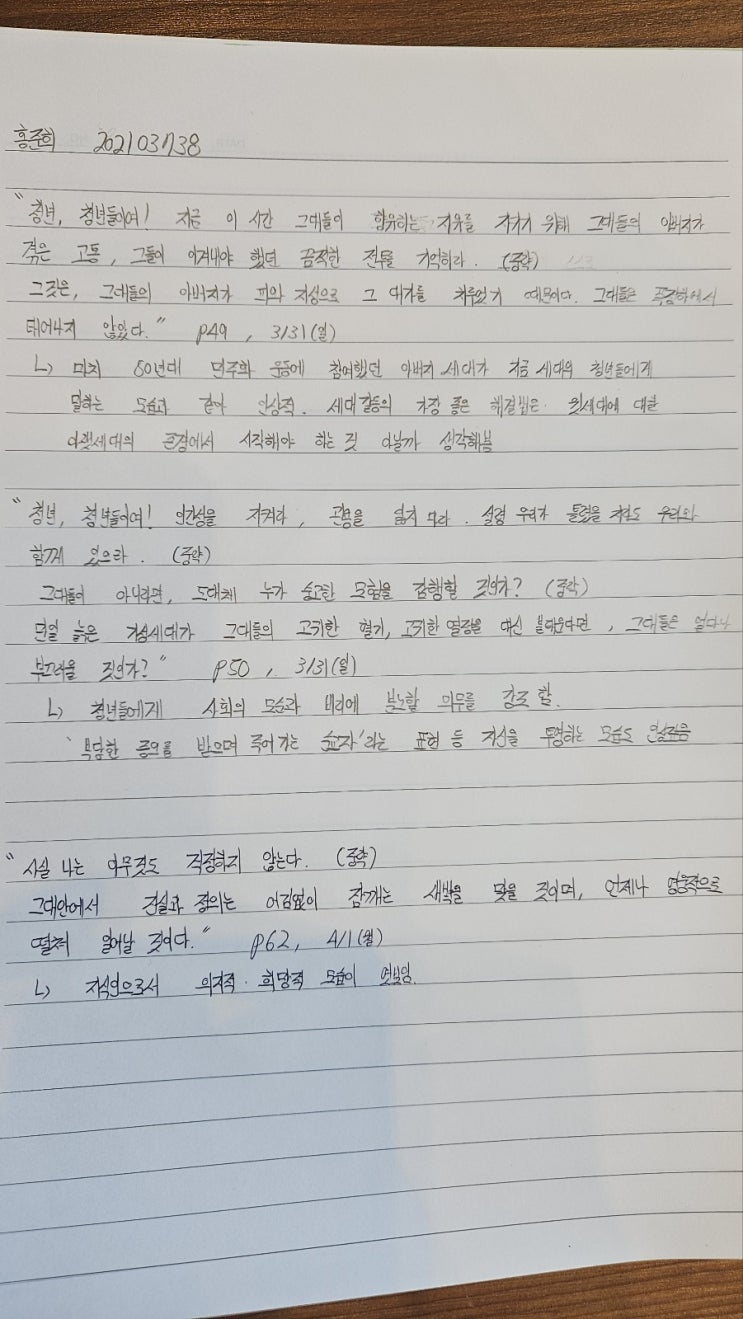 홍준희 2021031738
"청년, 청년들이여! 지금 이 시간 그대들이 향유하는 자유를 지키기 위해 그대들의 아버지가
겪은 고통, 그들이 이겨내야 했던 끔찍한 전투를 기억하라. (중략)
그것은, 그대들의 아버지가 피와 지성으로 그 대가를 치루었기 때문이다. 그대들은 폭정하에서
태어나지 않았다." p49, 3/31(일)
↳ 마치 80년대 민주화 운동에 참여했던 아버지 세대가 지금 세대의 청년들에게
말하는 모습과 같아 인상적. 세대갈등의 가장 좋은 해결법은 윗세대에 대한
아랫세대의 존경에서 시작해야 하는 것 아닐까 생각해봄
"청년, 청년들이여! 인간성을 지켜라, 관용을 잃지 마라. 설령 우리가 틀렸을 지라도 우리와
함께 있으라. (중략)
그대들이 아니라면, 도대체 누가 숭고한 모험을 감행할 것인가? (중략)
만일 늙은 기성세대가 그대들의 고귀한 혈기, 고귀한 열정을 대신 불태운다면, 그대들은 얼마나
부끄러울 것인가?" p50, 3/31(일)
↳ 청년들에게 사회의 모습과 비리에 분노할 의무를 강조 함.
'부당한 증오를 받으며 죽어가는 순교자'라는 표현 등 자신을 투영하는 모습도 인상깊음
"사실 나는 아무것도 걱정하지 않는다. (중략)
그대안에서 진실과 정의는 어김없이 잠깨는 새벽을 맞을 것이며, 언제나 영웅적으로
떨쳐 일어날 것이다." p62, 4/1(월)
↳ 지식인으로서 의지적·희망적 모습이 엿보임.